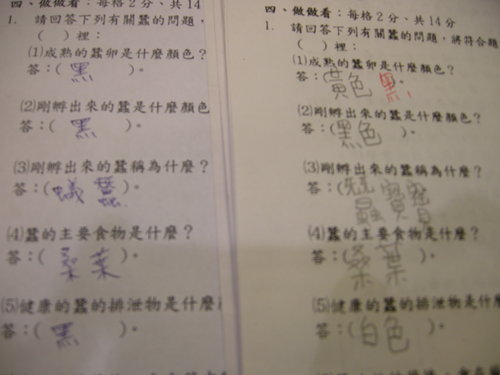 四、做做看：每格2分、共14
1. 請回答下列有關蠶的問題，
( )裡：
(1)成熟的蠶卵是什麼顏色？
答：( 黑 )。
(2)剛孵出來的蠶是什麼顏色
答：( 黑 )。
(3)剛孵出來的蠶稱為什麼？
答：(蟻蠶)。
(4)蠶的主要食物是什麼？
答：( 桑葉 )。
(5)健康的蠶的排泄物是什麼
答：( 黑 )。
四、做做看：每格2分、共14分
1. 請回答下列有關蠶的問題，將符合題
( )裡：
(1)成熟的蠶卵是什麼顏色？
答：(黃色)。黑
(2)剛孵出來的蠶是什麼顏色？
答：(黑色)。
(3)剛孵出來的蠶稱為什麼？
答：( 寶寶 )。
(4)蠶的主要食物是什麼？
答：( 桑葉 )。
(5)健康的蠶的排泄物是什麼顏
答：(白色)。